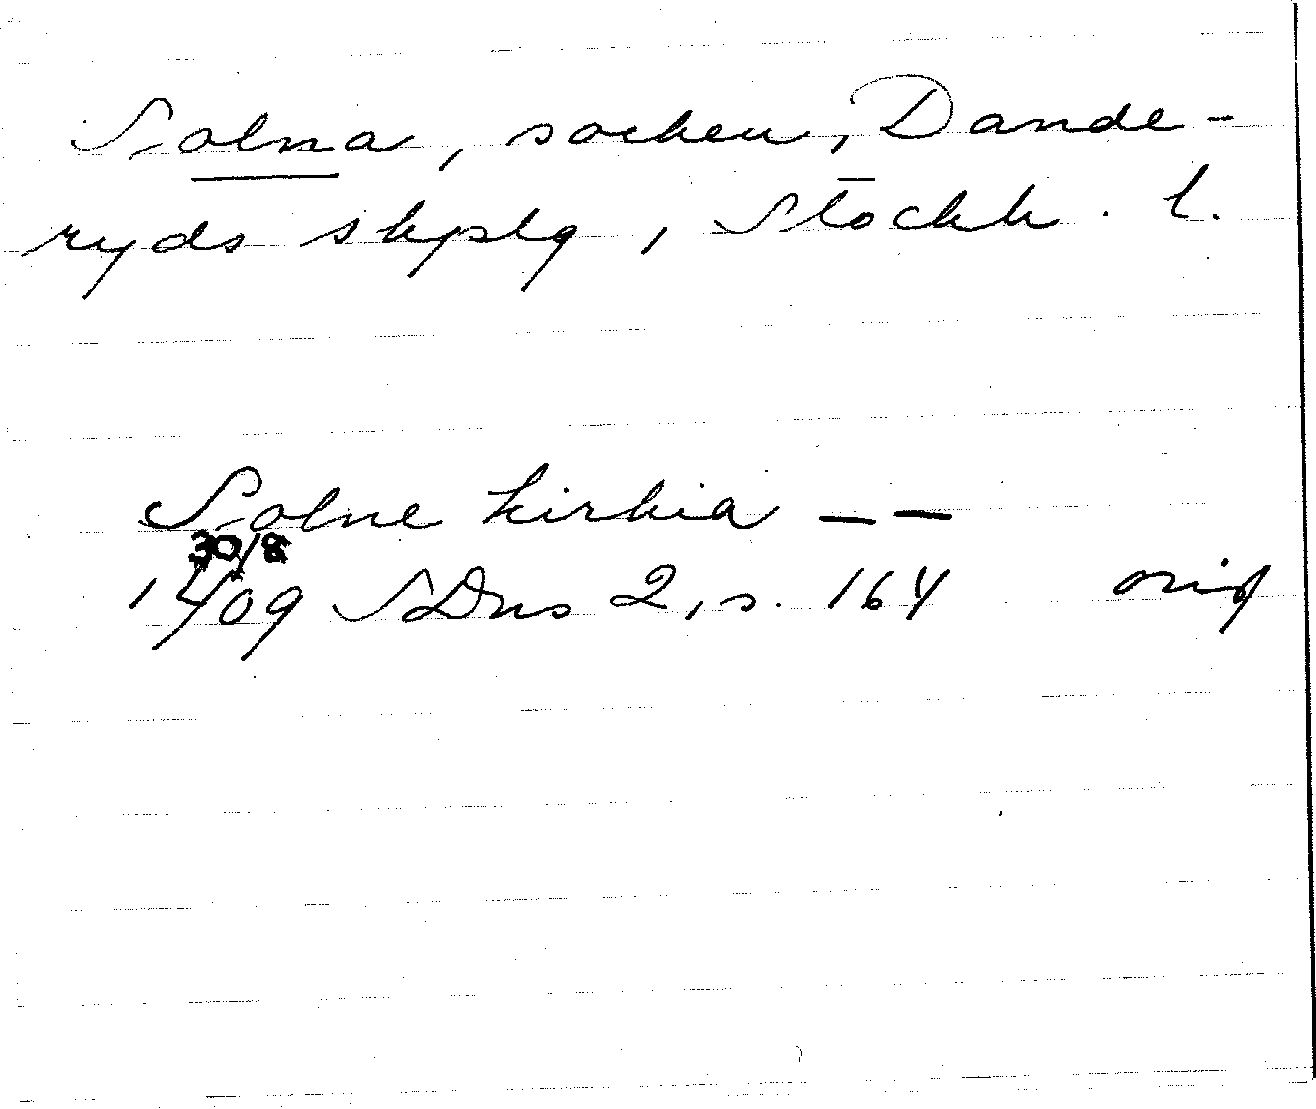 Solna, socken, Dande-
ryds skplg, Stockh. l.
Solne kirkia — —
30/8
1409 SDns 2, s. 164 orig